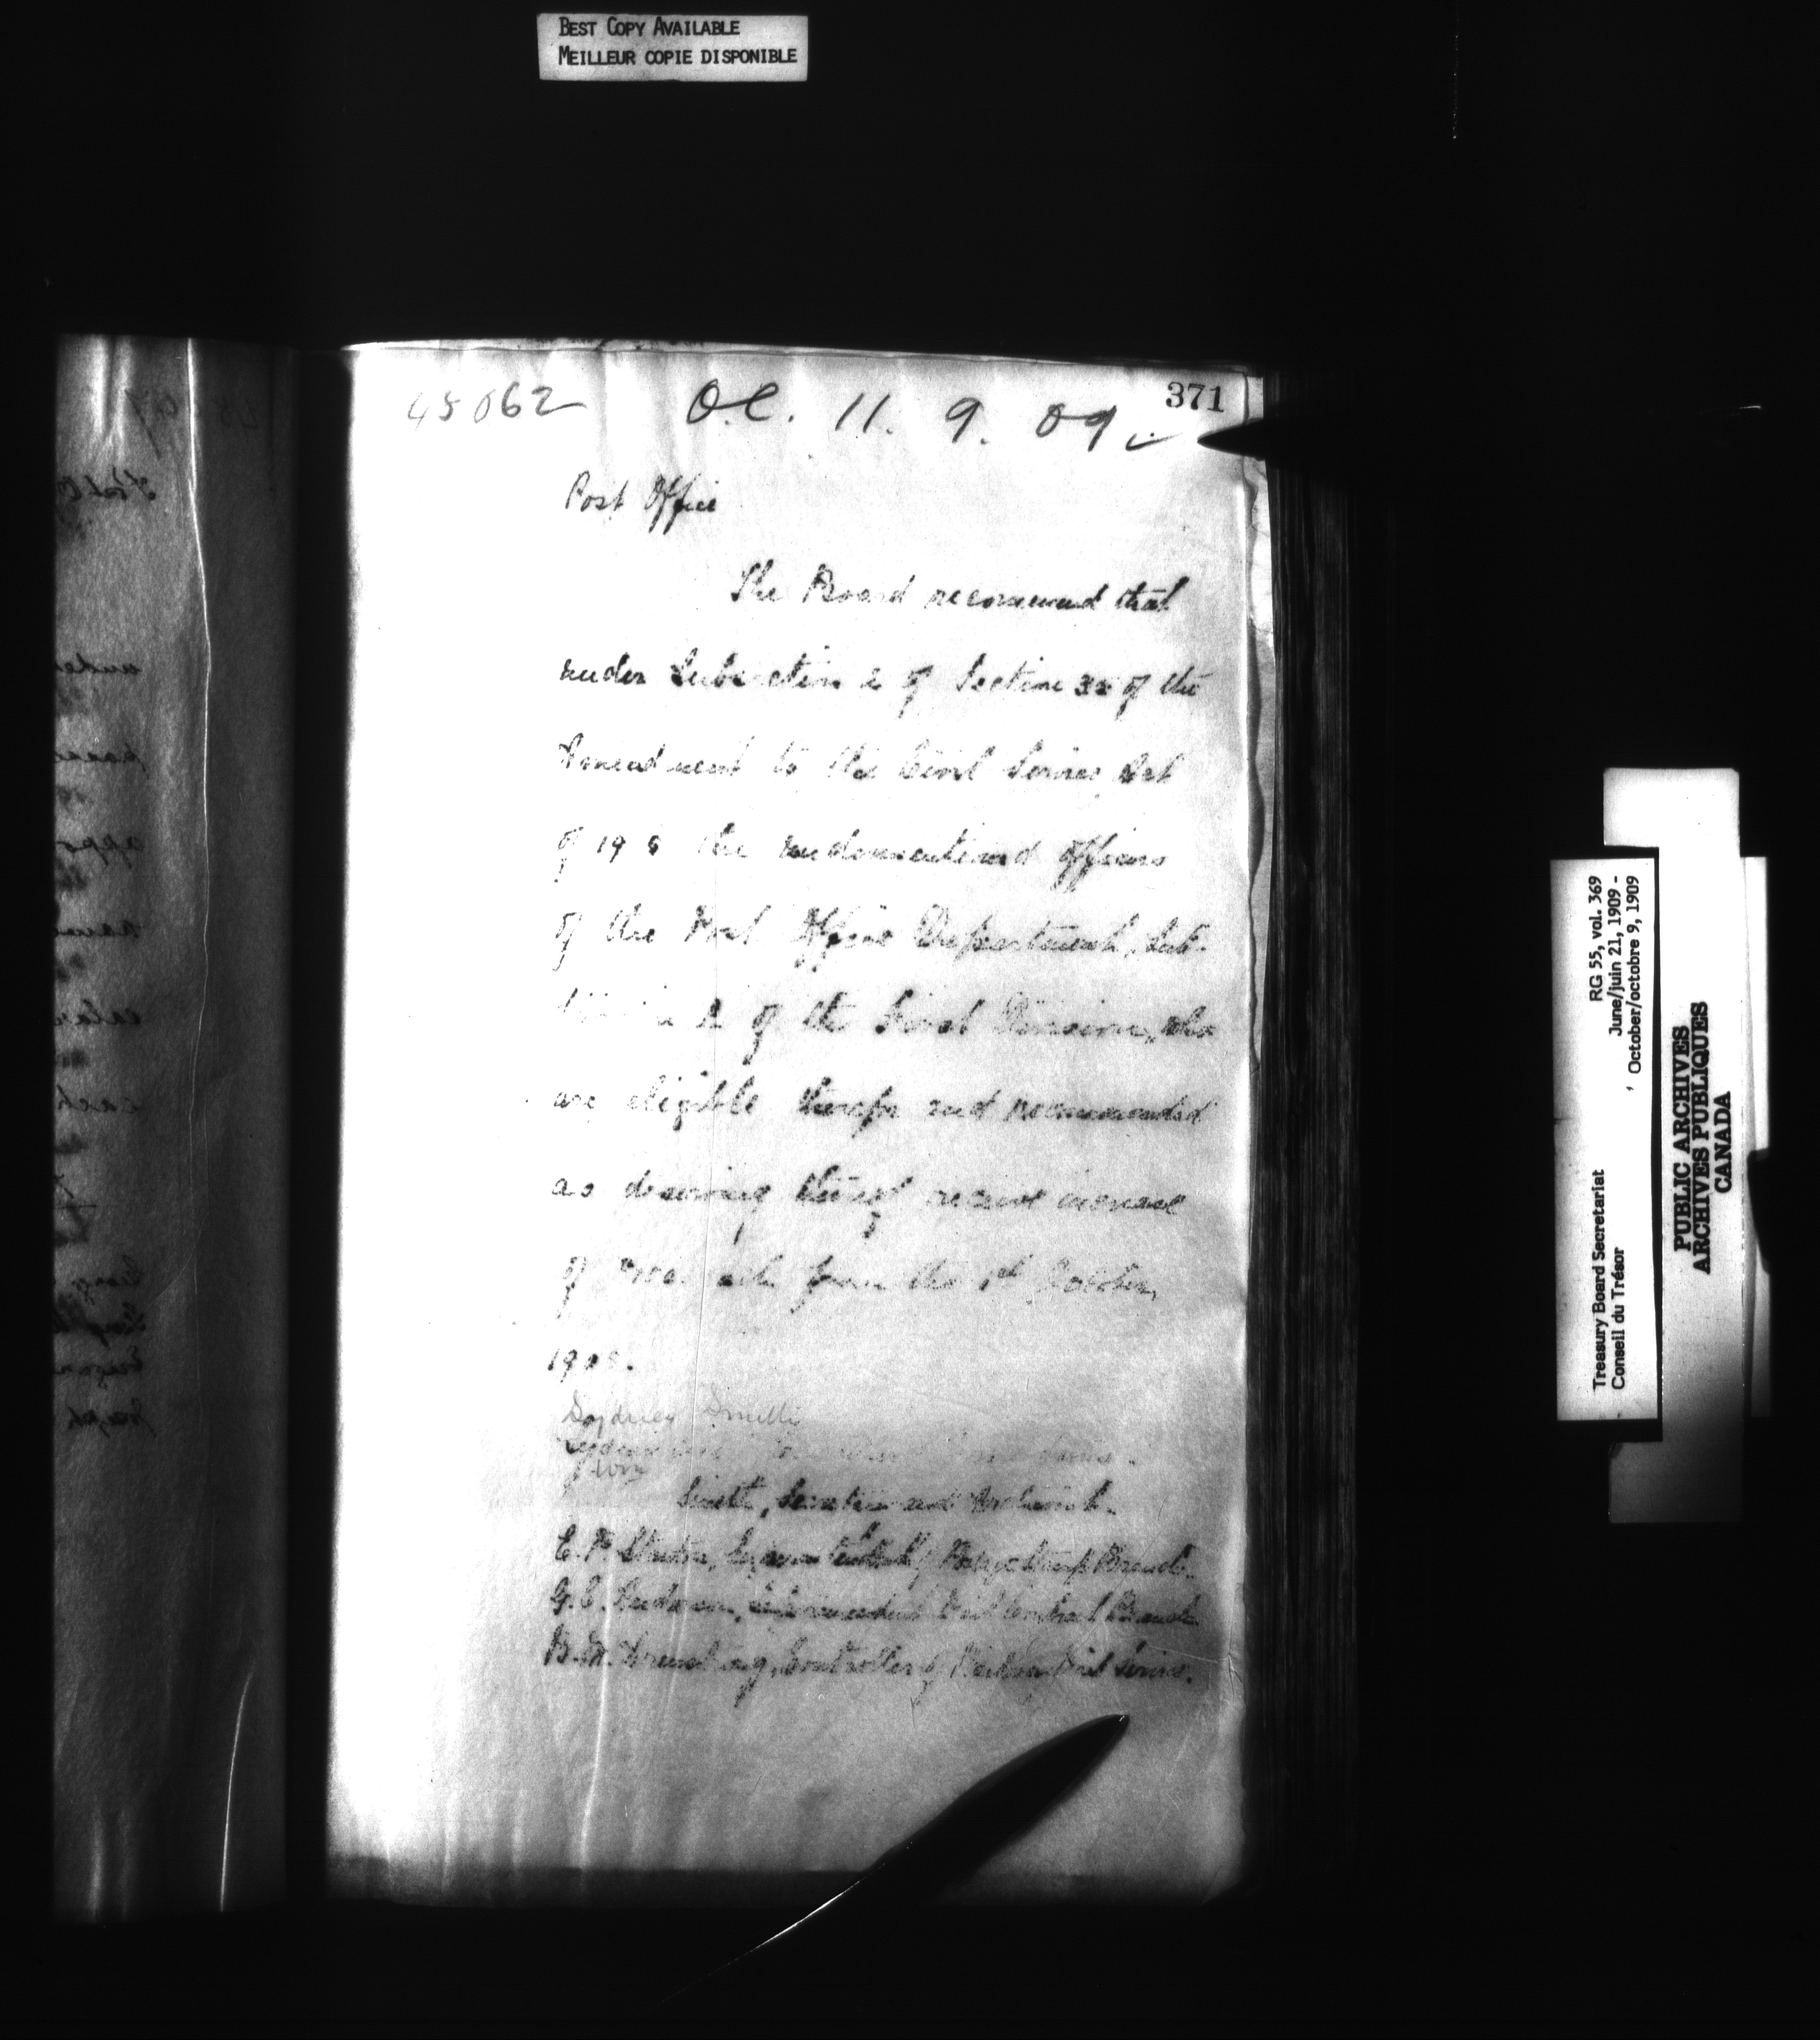 BEST COPY AVAILABLE
MEILLEUR COPIE DISPONIBLE
371
45062
O.C. 11. 9. 09
Post Office
The Board recommend that
under Subsection 2 of Section 32 of the
Amendment to the Civil Service Act
of 19 8 the undermentioned officers
of the Post Office Department, Sub-
of the First Division, who
are eligible therefor and recommended
as deserving thereof receive increase
of each from the 1st October,
190
Sydney Smith
Smith, and
E. P. Stanton, Superintendent of Postage Stamp Branch.
G. C. Anderson, Superintendent Mail Contract Branch
B. M. Armstrong, Controller of Railway Mail Service.
RG 55, vol. 369
June/juin 21, 1909 -
October/octobre 9, 1909
Treasury Board Secretariat
Conseil du Trésor
PUBLIC ARCHIVES
ARCHIVES PUBLIQUES
CANADA